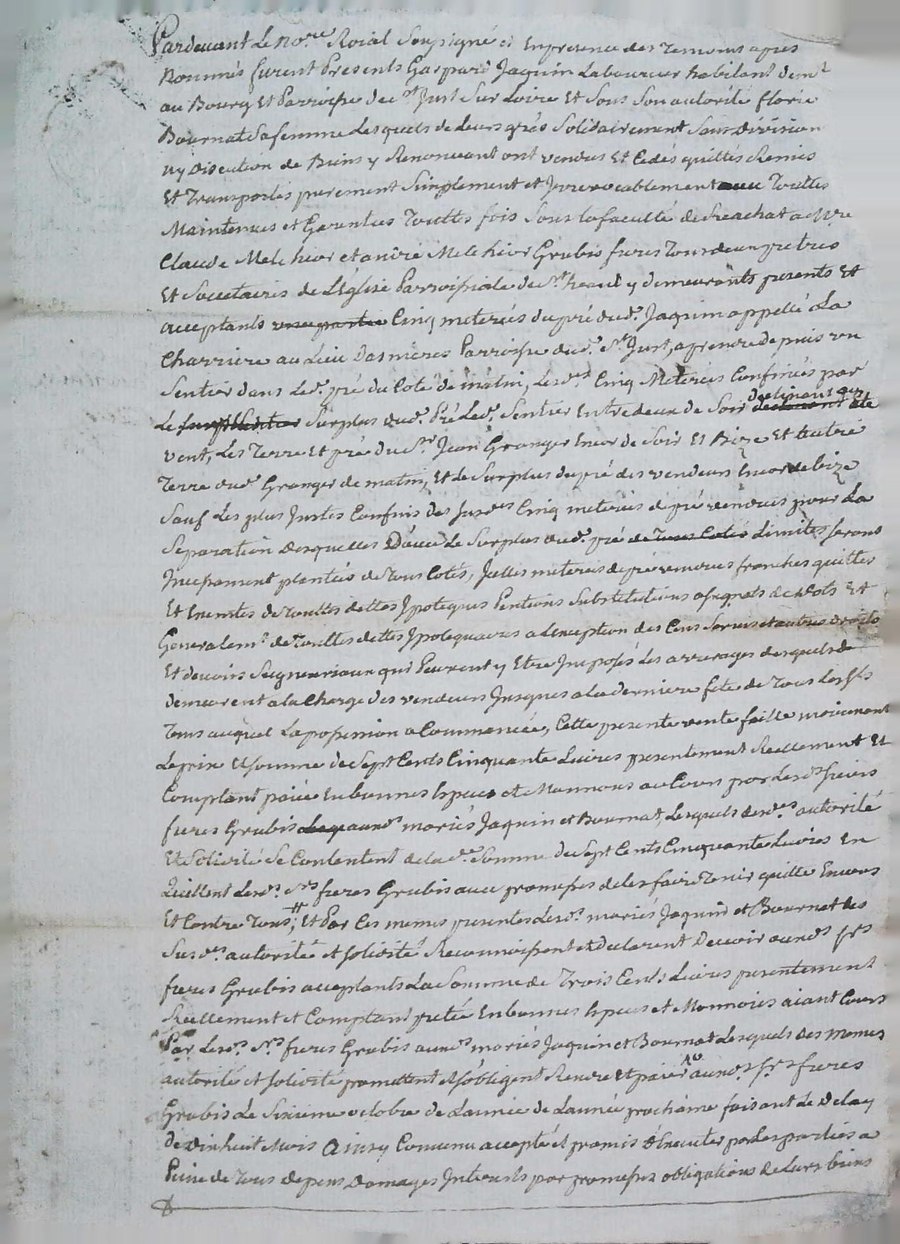 Pardevant Le no.re Roial Soussigné et En presence des Temoins apres
Nommés furent Presents Gaspard Jaquin Laboureur habitant dem.t
au Bourg Et Parroisse de S.t Just Sur Loire Et Sous Son autorité florie
Bournat Sa femme Lesquels de Leurs grés Solidairement Sans division
ny discution de Biens y Renonceant ont vendus Et Cedés quittés Remis
Et Transportés purement Simplement et Irrevocablement avec Touttes
Maintenues et Garanties Touttes fois Sous la faculté de Reachat a M.re
Claude Melchior et andré Melchior Grubis freres Tous deux pretres
Et Societaires de L'Eglise Parroissiale de S.t heand y demeurants presents Et
acceptants une partie Cinq meterées du pré dud.t Jaquin appellé La
Charriere au Lieu Dasnieres Parroisse dud.t S.t Just, a prendre depuis un
Sentier dans Led.t pré du Coté de matin, Lesd.es Cinq Meterées Confinées par
Le Surplus dud.t Pré Led.t Sentier Entredeux de Soir declinant
vent, Les Terre Et pré du S.r Jean Granger Encor de Soir Et Bize Et autre
Terre dud.t Granger de matin, Et le Surplus du pré des vendeurs Encor de bize
Sauf Les plus Justes Confins Des Susd.es Cinq meterées de pré vendues pour La
Separation desquelles D'avec Le Surplus dud.t pré de tous Cotés Limites Seront
Incessament plantées de Tous Cotés, Jcelles meterées de pré vendues franches quittes
Et Exemptes de Touttes dettes Jpoteques Pentions Substitutions asignats de dots Et
Generalem.t de Touttes dettes Jpotequaires a L'exeption des Cens Servis et autres droits
Et devoirs Seigneuriaux qui Peuvent y Etre Imposés Les arrerages desquels
demeurent a la Charge des vendeurs Jusques a La derniere fete de Tous Les S.ts
Tems auquel La possession a Commancée, Cette presente vente faitte moienant
Le prix Et Somme de Sept Cents Cinquante Livres presentement Reellement Et
Comptant paiée En bonnes Especes et Monnoies au Cours par Lesd.ts sieurs
freres Grubis auxd.ts mariés Jaquin et Bournat, Lesquels desd.es autorité
Et Solidité Se Contentent de lad.te Somme de Sept Cents Cinquante Livres En
Quittent Lesd.ts S.rs freres Grubis avec promesses de les faire Tenir quitte Envers
Et Contre Tous # Et Par Ces memes presentes Lesd.ts mariés Jaquin et Bournat des
Susd.es autorité et Solidité Reconnoissent et declarent Devoir auxd.ts S.rs
freres Grubis acceptants La Somme de Trois Cents Livres presentement
Reellement et Comptant pretée En bonnes Especes et Monnoies aiant Cours
Par Lesd.ts S.rs freres Grubis auxd.ts mariés Jaquin et Bournat Lesquels des Memes
autorité et Solidité promettent et S'obligent Rendre et paier auxd.ts S.rs freres
Grubis Le Sixieme octobre de L'année de L'année prochaine faisant Le Delay
de Dixhuit Mois Ainsy Convenu accepté et promis Executer par Les parties a
Peine de Tous depens Domages Interests par promesses obligations de Leurs biens